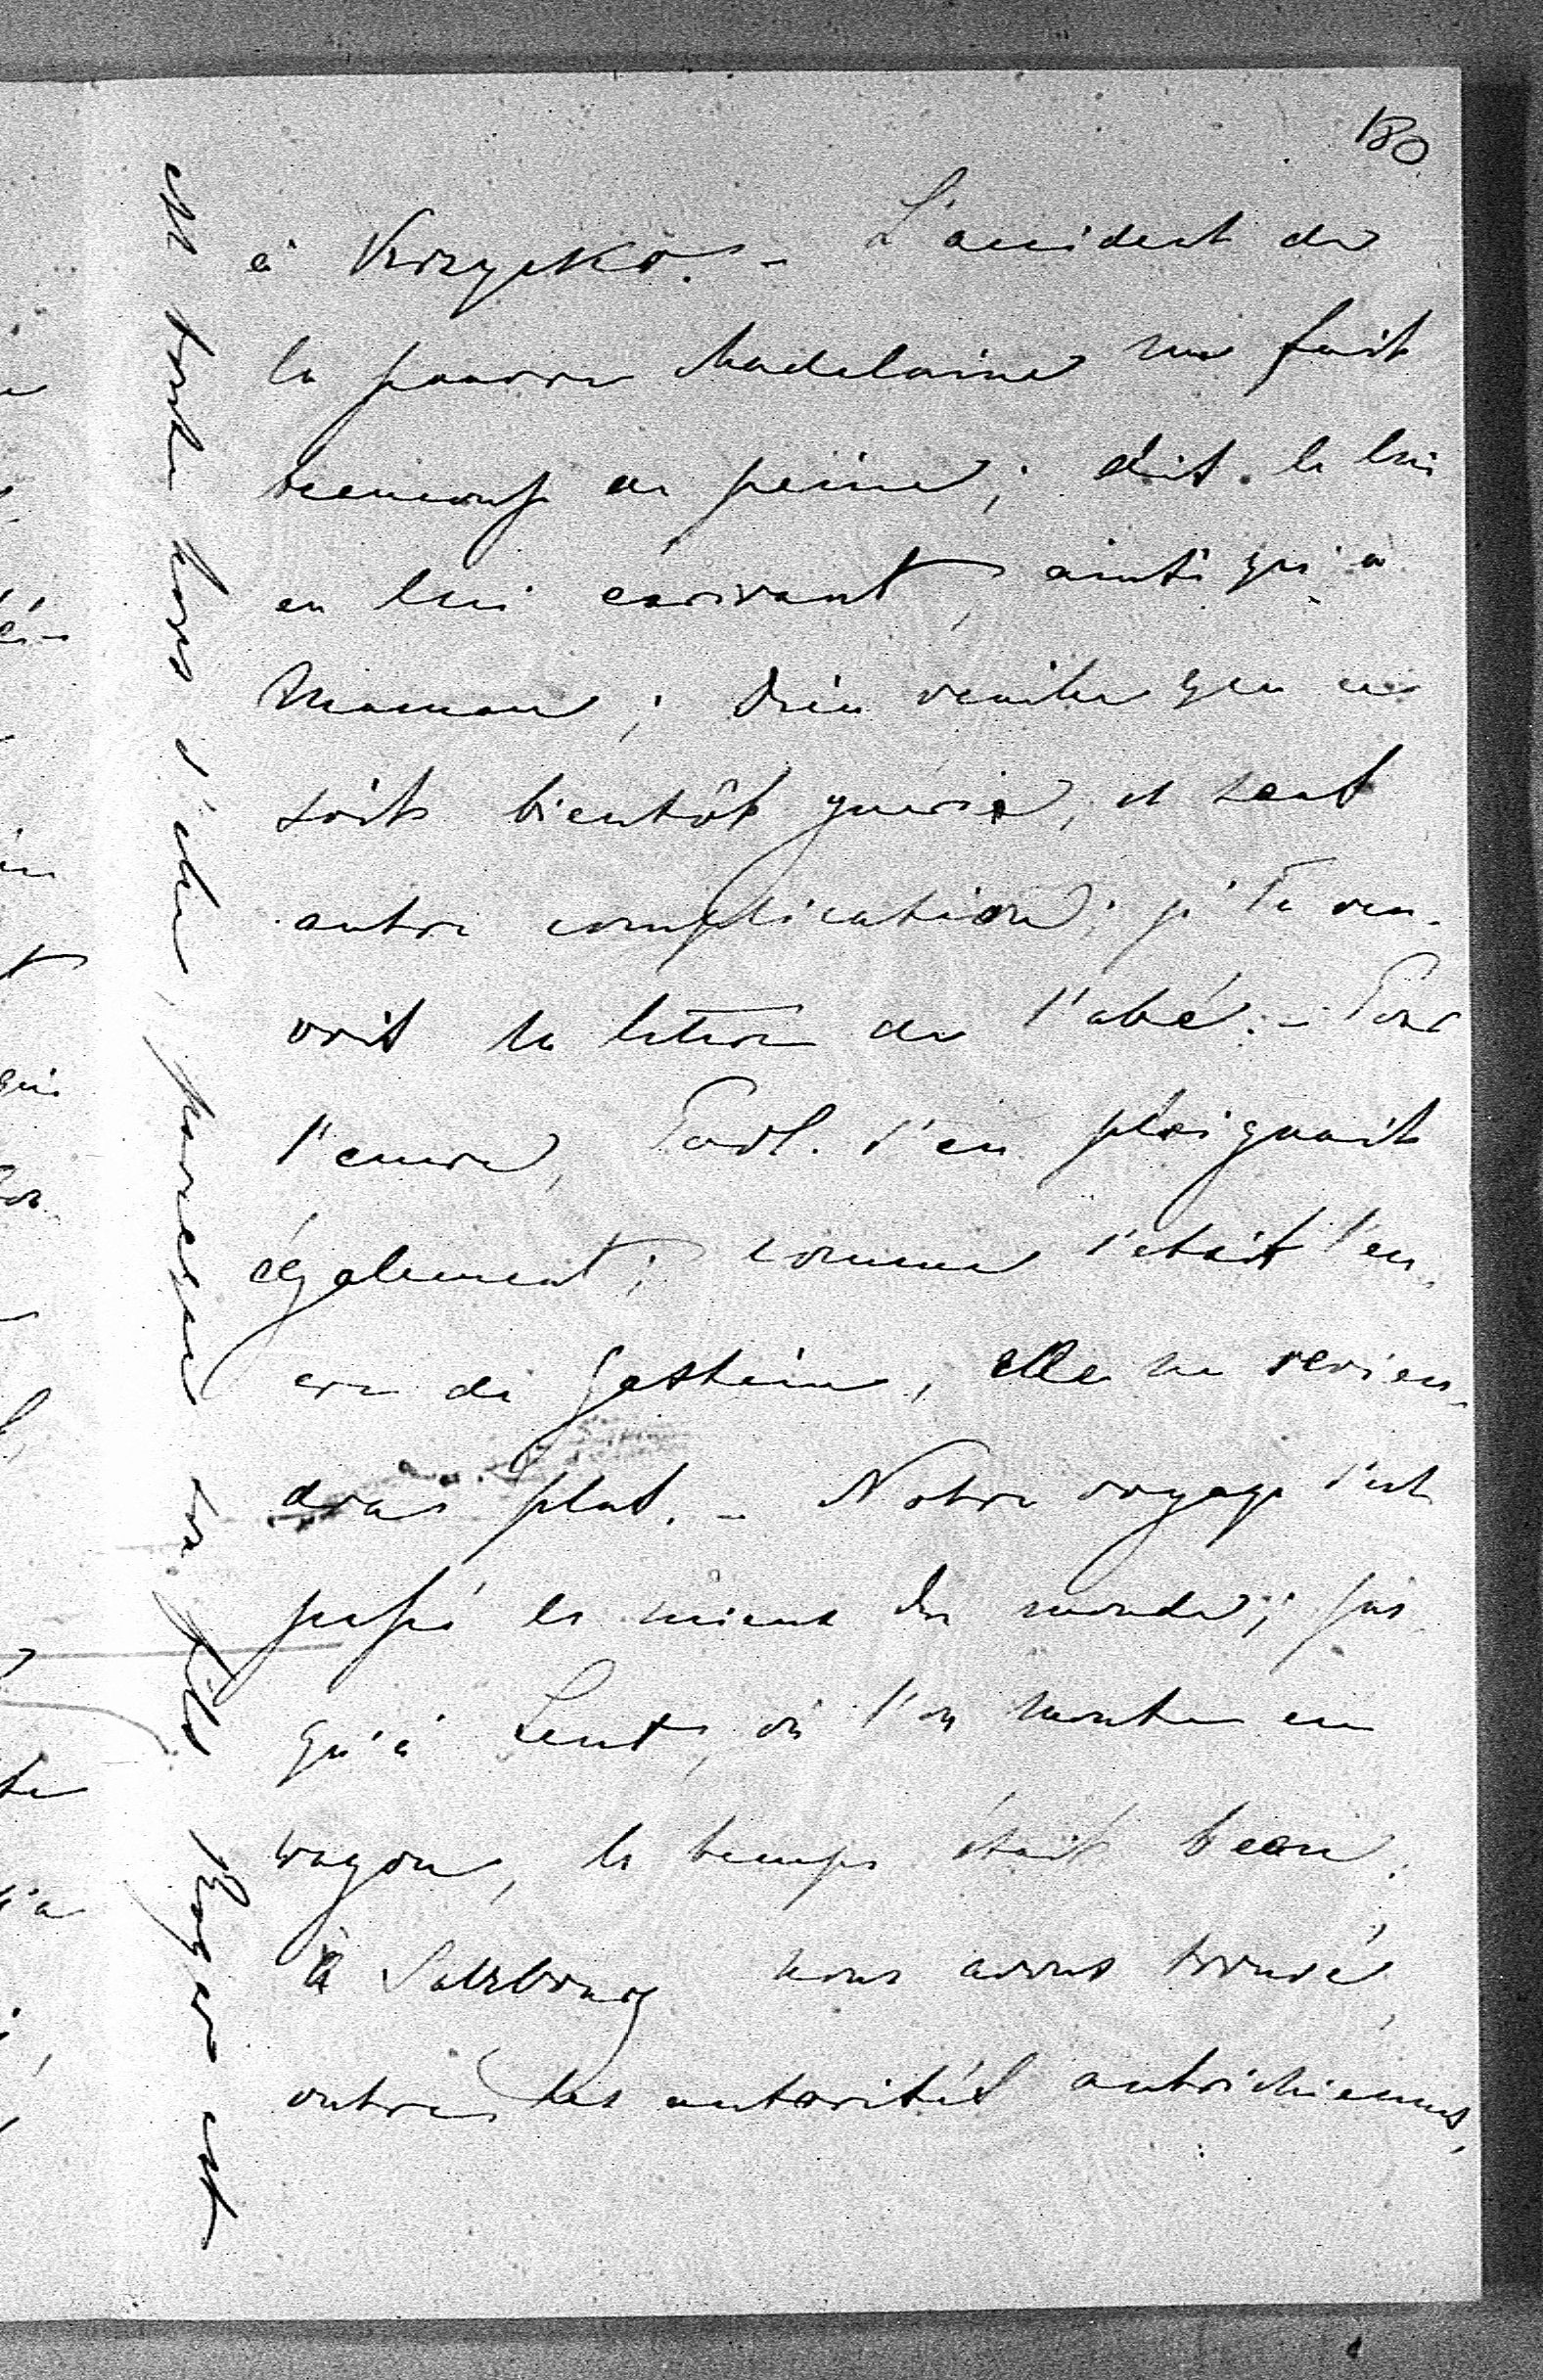 180
à Krzyżko. - L'accident de
la pauvre Madelaine me fait
beaucoup de peine; dit-le lui
en lui écrivant, ainsi qu'à
Maman; Dieu veuille que ce
soit bientôt guérie, et sans
autre complication; j' Te ren-
voit la lettre de l'abé. - Pour
l'encre, Godl. s'en pleignait
également; comme s'etait l'en-
cre de Gasteine, elle ne revien-
dras plus. - Notre voyage s'est
passé le mieux du monde; jus-
qu'à Lent, où l'on monte en
wagon, le temps était beau;
à Salzbourg nous avons trouvé,
outre les autorités autrichiennes,
et